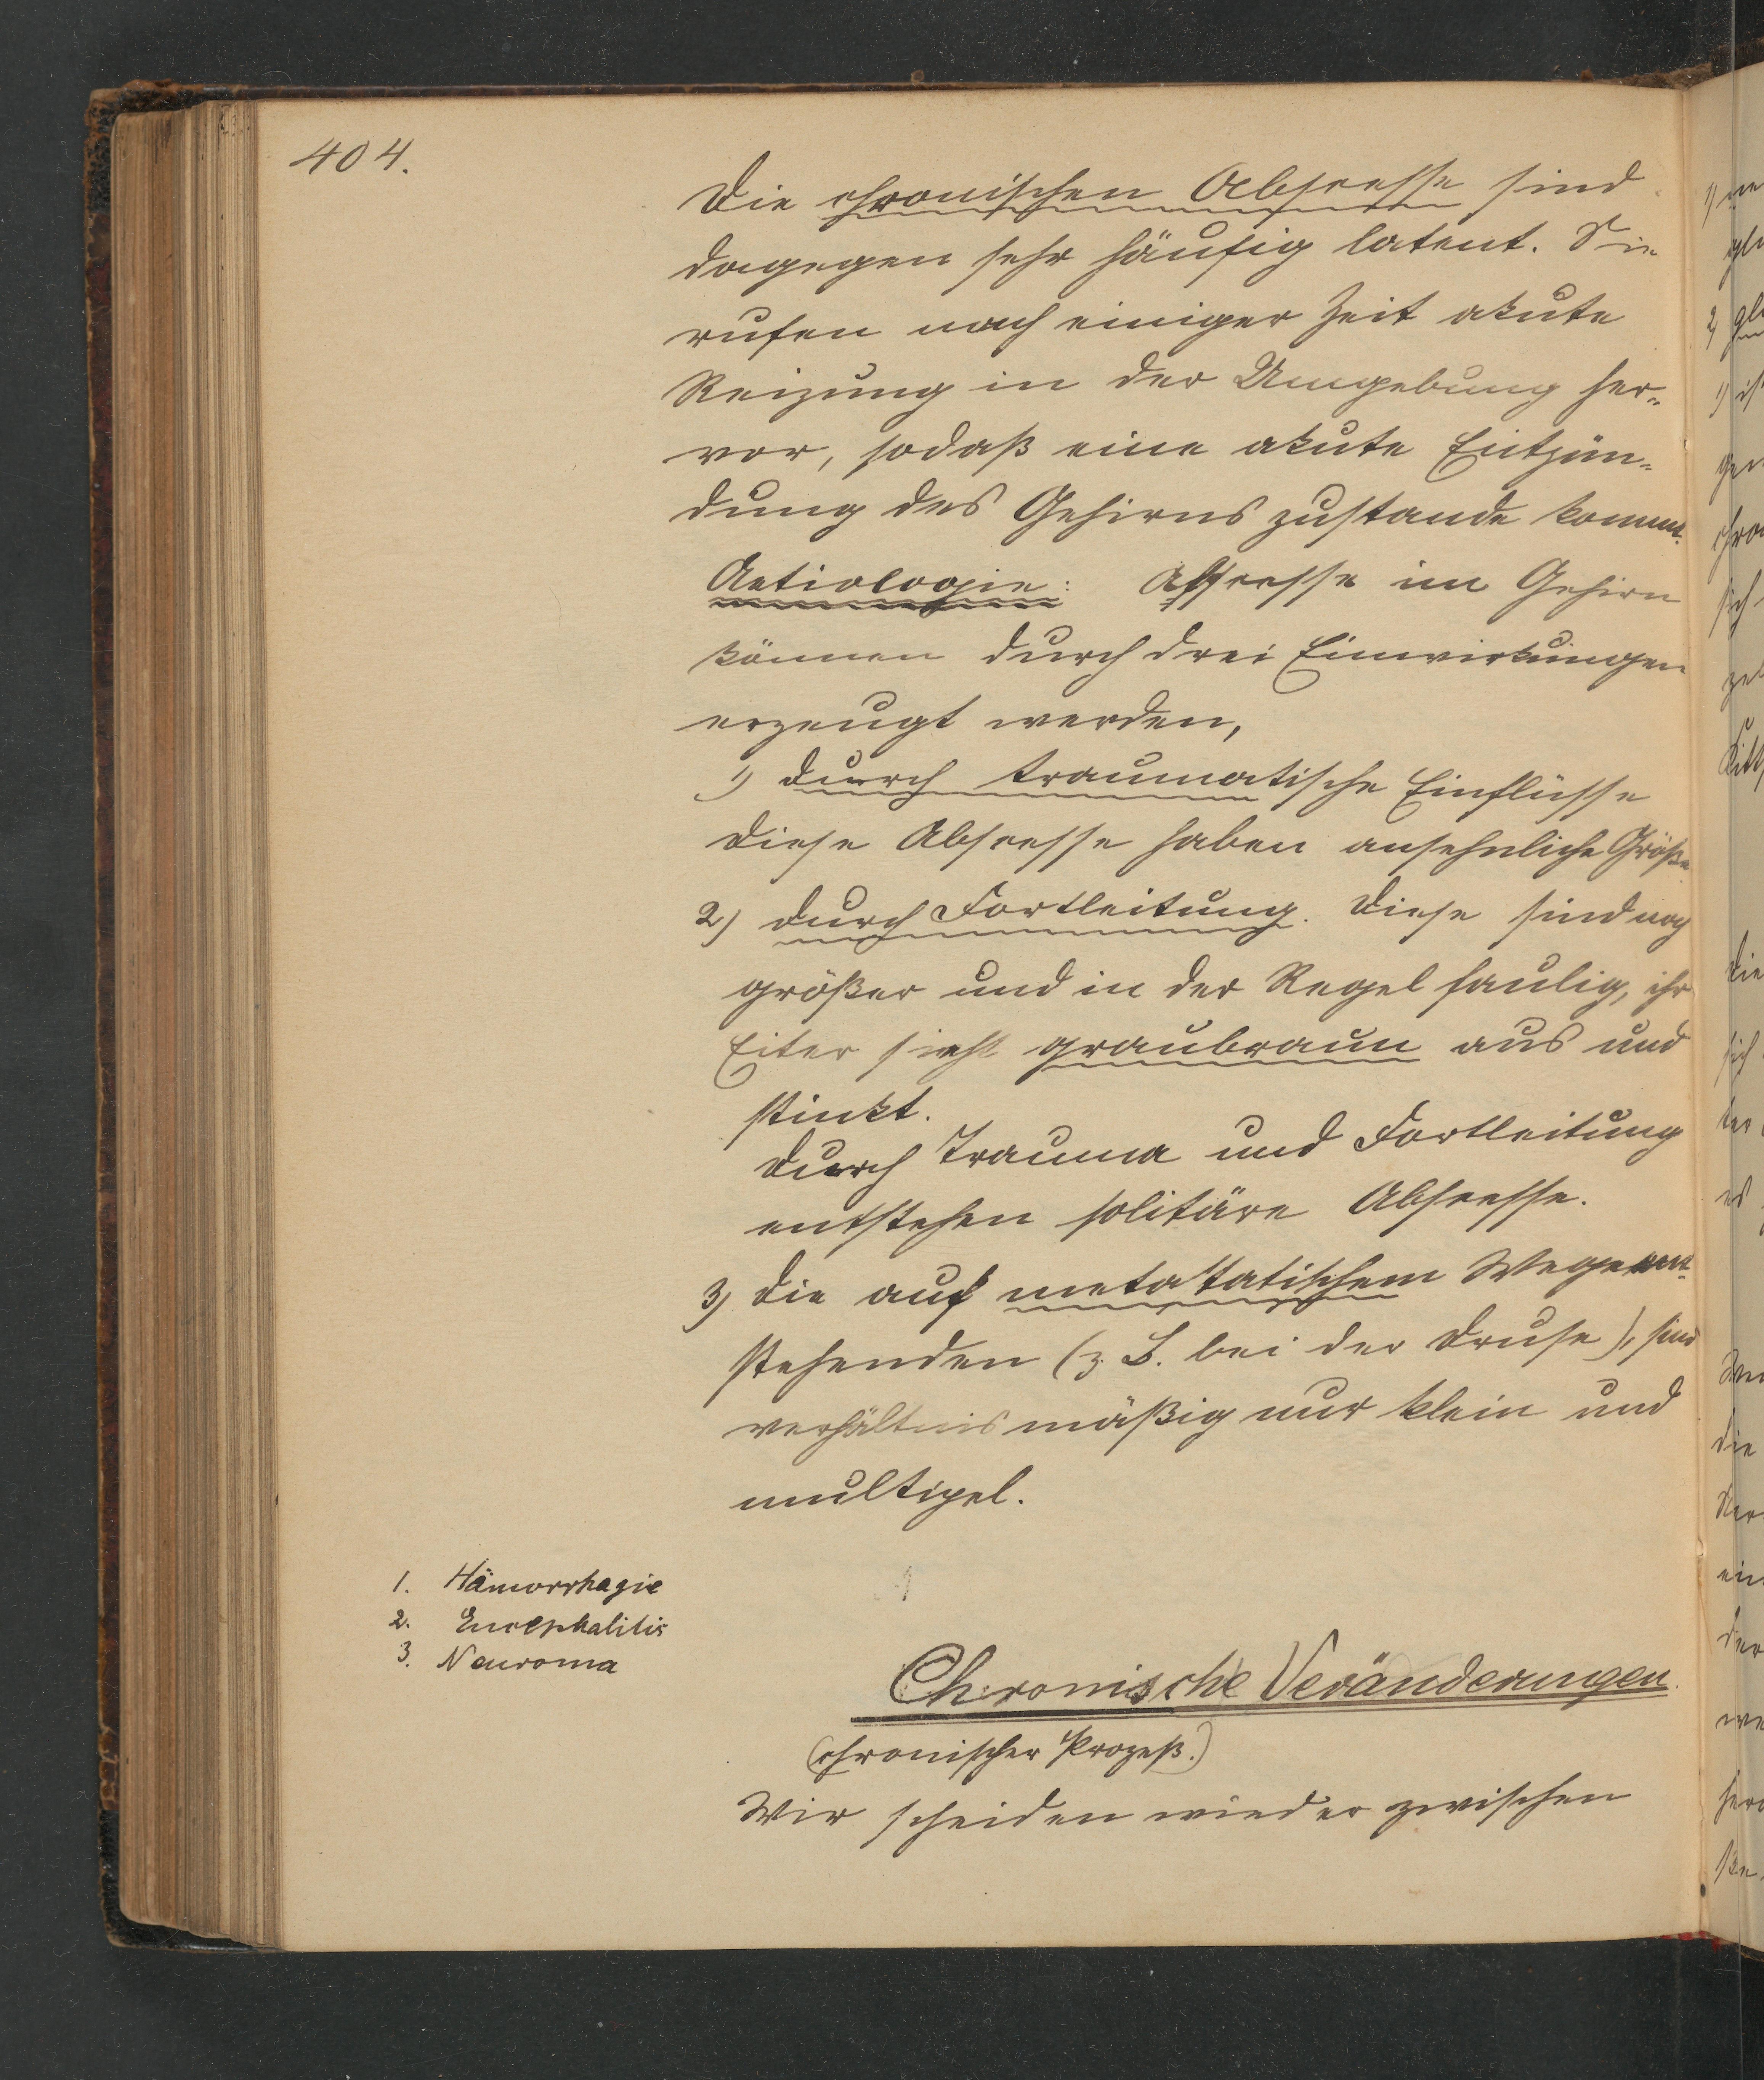 404.
Die chronischen Abscesse sind
dagegen sehr häufig latent. Sie
rufen nach einiger Zeit akute
Reizung in der Umgebung her-
vor, sodaß eine akute Entzün-
dung des Gehirns zustande kommt.
Aetiologie: Abscesse im Gehirn
können durch drei Einwirkungen
erzeugt werden,
1) durch traumatische Einflüsse
diese Abscesse haben ansehnliche Größe
2) durch Fortleitung. Diese sind noch
größer und in der Regel faulig, ihr
Eiter sieht graubraun aus und
stinkt.
Durch Trauma und Fortleitung
entstehen solitäre Abscesse.
3) Die auf metastatischem Wege ent-
stehenden (z. B. bei der Druse), sind
verhältnismäßig nur klein und
multipel.
1. Hämorrhagie
2. Encephalitis
3. Neuroma
Chronische Veränderungen.
(chronischer Prozeß.)
Wir scheiden wieder zwischen